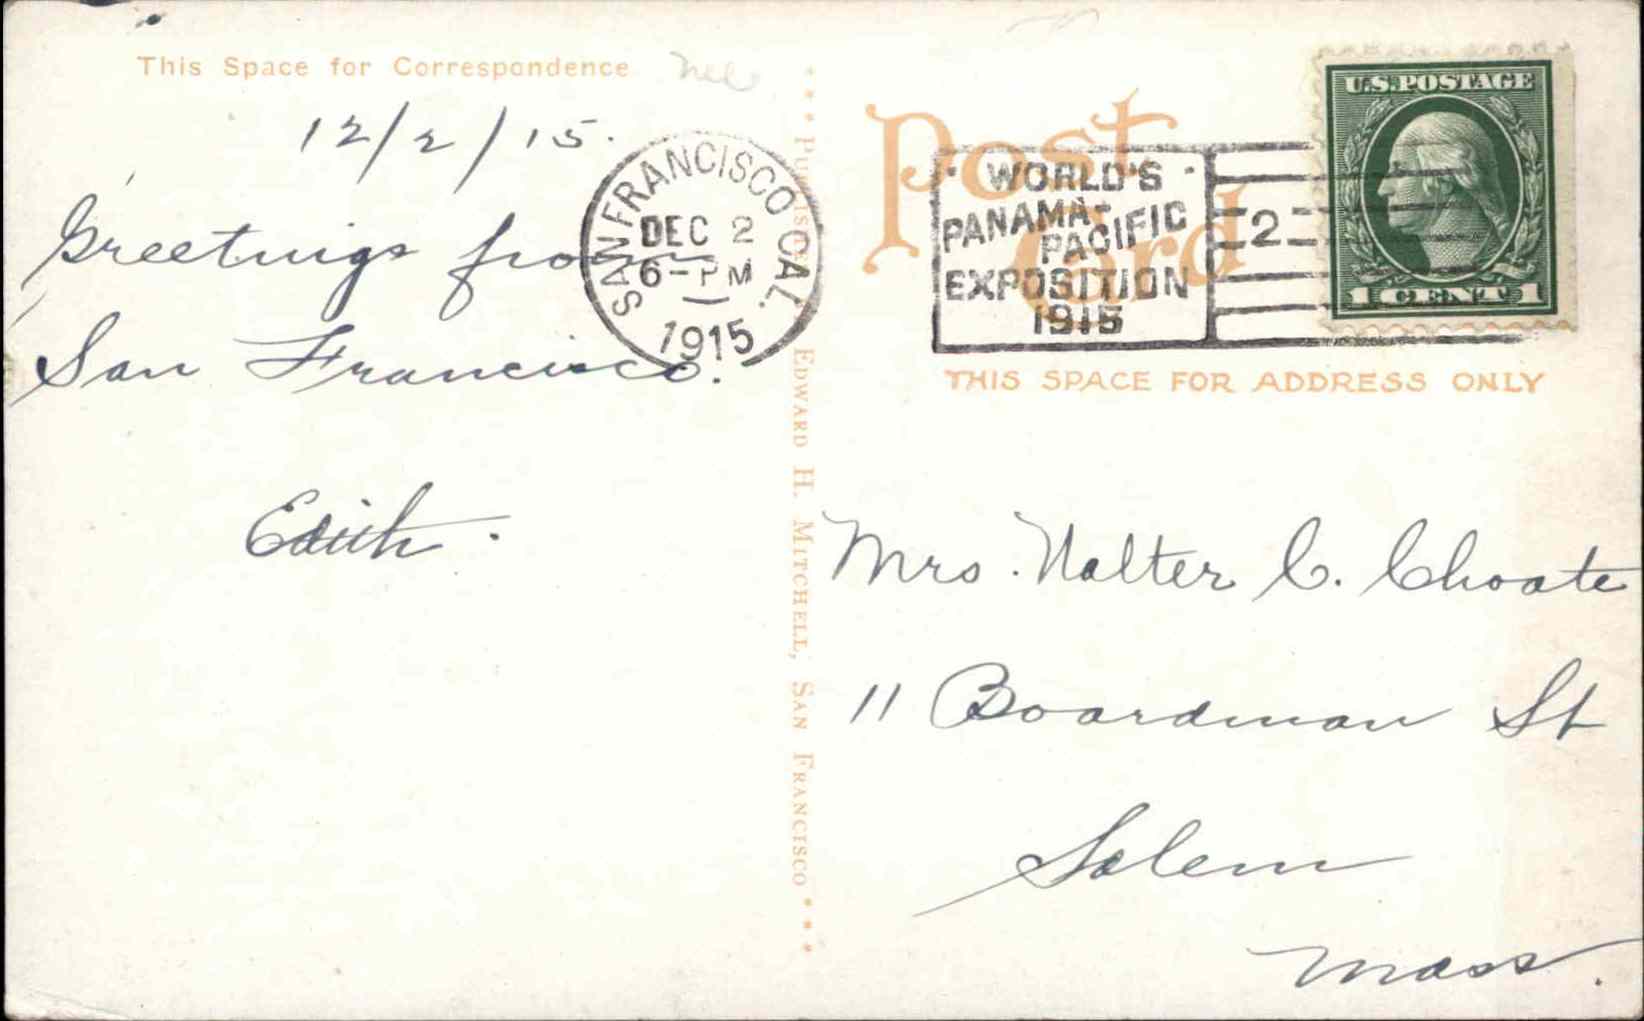 This Space for Correspondence
12/2/15.
Greetings from
San Francisco.
Edith.
SAN FRANCISCO CAL.
DEC 2
6-PM
1915
EDWARD H. MITCHELL, SAN FRANCISCO
Post
Card
WORLD'S
PANAMA-
PACIFIC
EXPOSITION
1915
2
U.S. POSTAGE
1 CENT 1
THIS SPACE FOR ADDRESS ONLY
Mrs. Walter C. Choate
11 Boardman St
Salem
Mass.